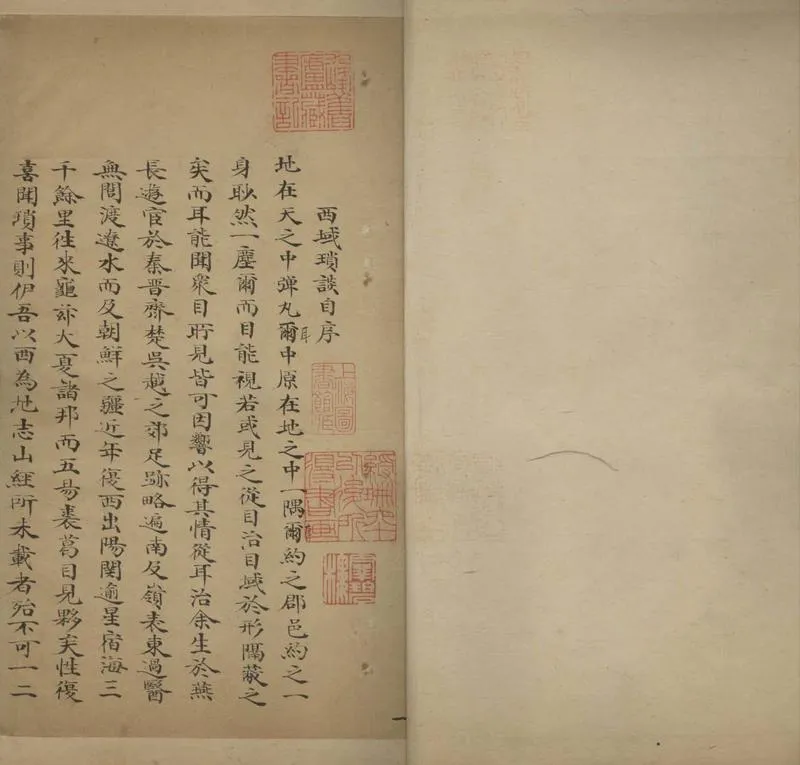 西域瑣談自序
地在天之中弹丸爾中原在地之中一隅爾約之郡邑約之一
耳
身耿然一塵爾而目能視若或見之從目治目域於形隔蔽之
矣而耳能聞衆目所見皆可因響以得其情從耳治余生於燕
長遊宦於秦晉齊楚吳越之郊足跡略遍南及嶺表東過醫
無閭渡遼水而及朝鮮之疆近年復西出陽関逾星宿海三
千餘里往来龜茲大夏諸邦而五易裘葛目見夥矣性復
喜聞瑣事則伊吾以西為地志山經所未載者殆不可一二
上海圖書館藏